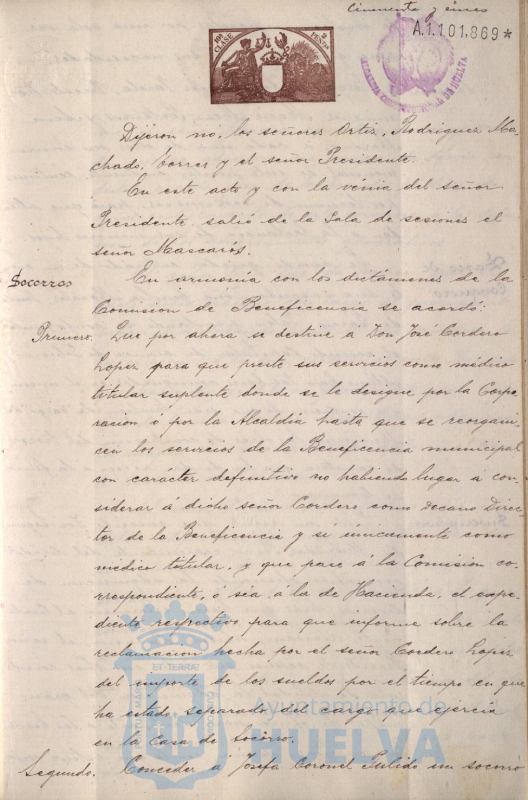 Cincuenta y cinco
10ª CLASE 2 PESETAS
A.1.101,869*
Dijeron no, los señores Ortiz, Rodriguez Ma-
chado, Correr y el señor Presidente.
En este acto y con la vénia del señor
Presidente salió de la Sala de sesiones el
señor Mascarós.
Socorros
En armonía con los dictámenes de la
Comision de Beneficencia se acordó:
Primero. Que por ahora se destine á Don José Cordero
Lopez para que preste sus servicios como médico
titular suplente donde se le designe por la Corpo-
racion ó por la Alcaldía hasta que se reorgani-
cen los servicios de la Beneficencia municipal
con carácter definitivo no habiendo lugar á con-
siderar á dicho señor Cordero como Decano Direc-
tor de la Beneficencia y sí únicamente como
medico titular, y que pase á la Comision co-
rrespondiente, ó séa, á la de Hacienda, el expe-
diente respectivo para que informe sobre la
reclamacion hecha por el señor Cordero Lopez
del importe de los sueldos por el tiempo en que
ha estado separado del cargo que ejercía
en la Casa de Socorro.
Segundo. Conceder á Josefa Coronel Pulido un socorro
Ayuntamiento de
HUELVA